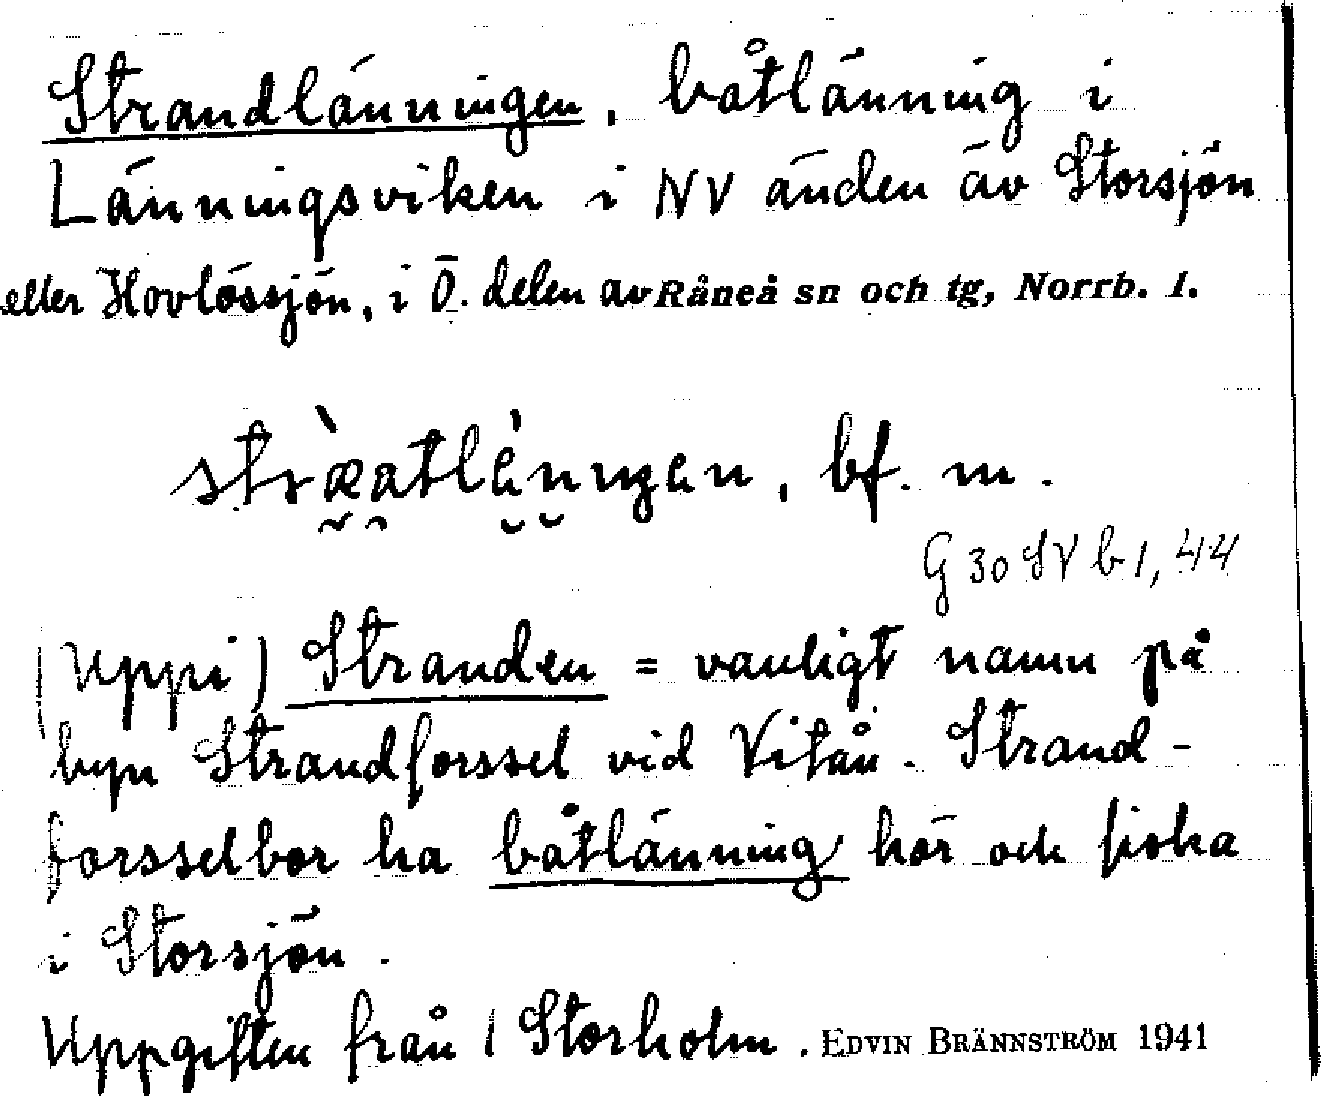 Strandlänningen, båtlänning i
Länningsviken i NV änden av Storsjön
eller Hovlössjön, i Ö. delen av Råneå sn och tg, Norrb. l.
bf. m.
G 30 SV b 1, 44
(Uppi) Stranden = vanligt namn på
byn Strandforssel vid Vitån. Strand-
forsselbor ha båtlänning här och fiska
i Storsjön.
Uppgiften från 1 Storholm. EDVIN BRÄNNSTRÖM 1941